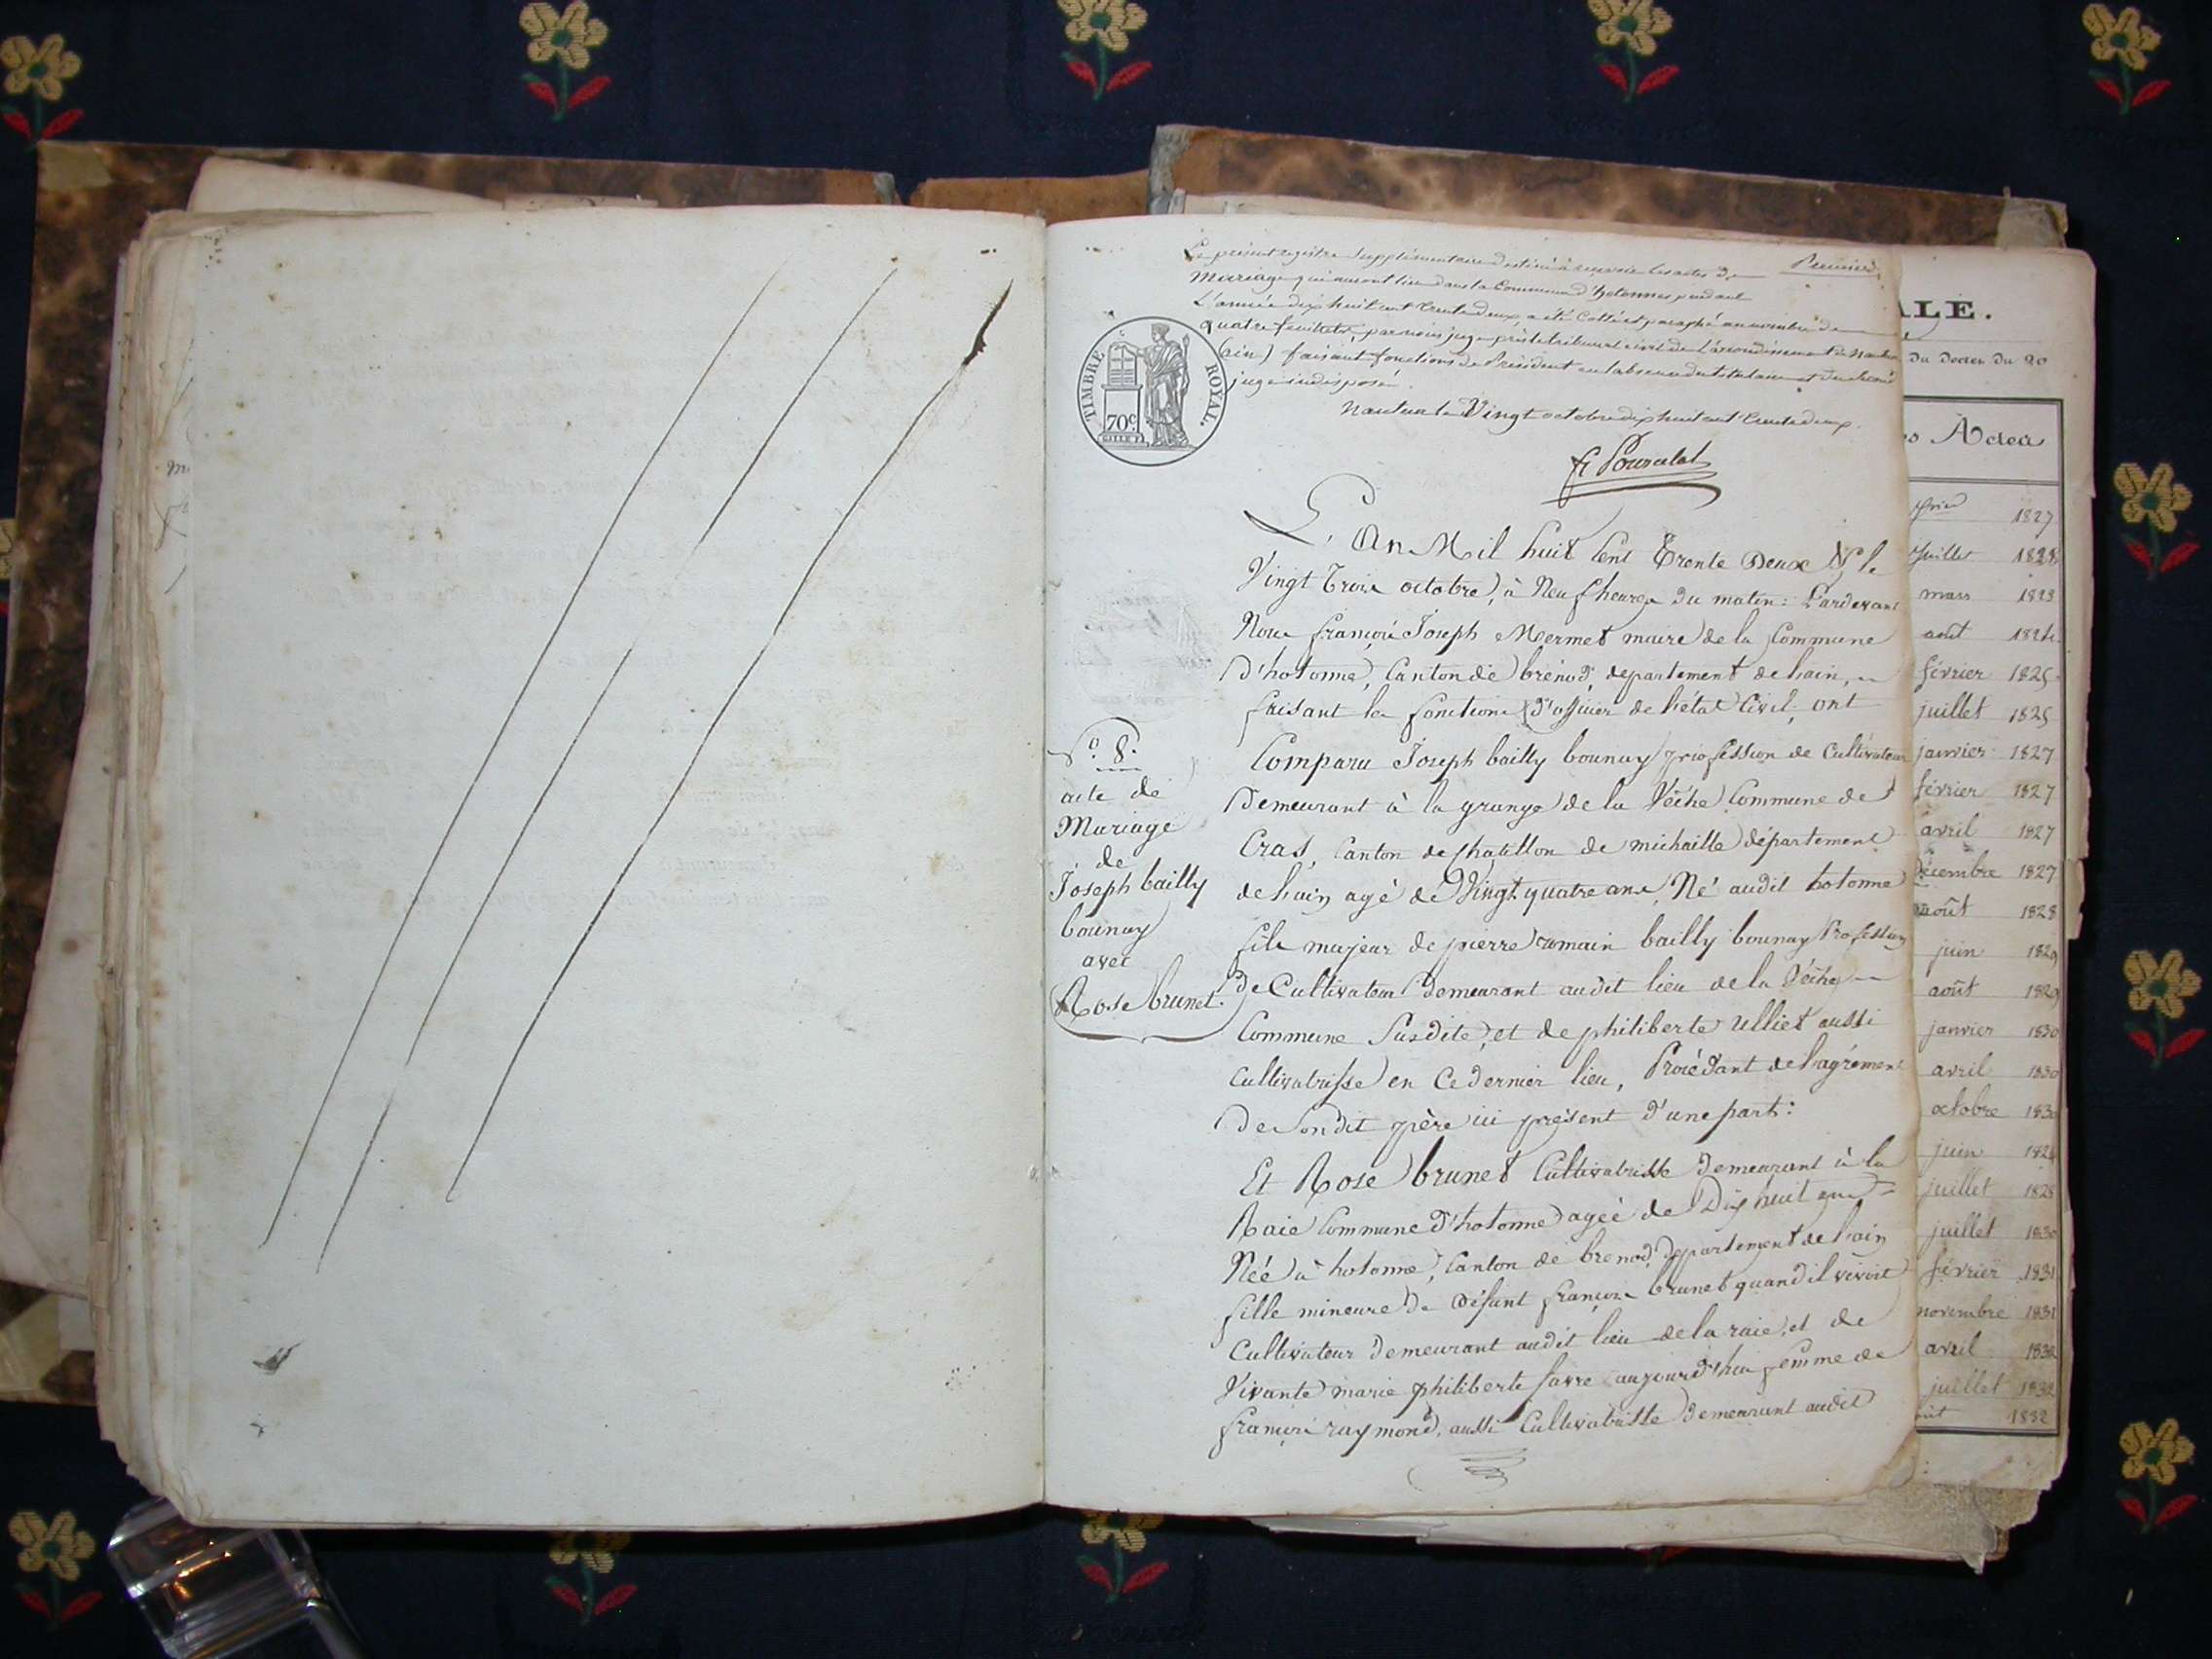 Premier
Le présent registre supplémentaire destiné à recevoir les actes de
Mariage qui auront lieu dans la Commune d'hotonnes pendant
L'année dix huit cent trente deux, a été Cotté et paraphé au nombre de
quatre feuillets, par nous juge près le tribunal civil de l'arrondissement de Nantua
(ain) faisant fonctions de Président en l'absence du titulaire et du second
juge indisposé.
Nantua le Vingt octobre dix huit cent trente deux.
TIMBRE ROYAL.
70c.
L'An Mil huit Cent Trente Deux & le
Vingt Trois octobre, à Neuf heures du matin: Pardevant
Nous françois Joseph Mermet maire de la Commune
D'hotonne, Canton de brénod, departement de l'ain,
faisant les fonctions d'officier de l'état Civil, ont
Comparu Joseph bailly bounay profession de Cultivateur
Demeurant à la grange de la Vêche Commune de
Cras, Canton de Chatillon de michaille département
de l'ain agé de Vingt quatre ans, Né audit hotonne
fils majeur de pierre romain bailly bounay Profession
De Cultivateur demeurant audit lieu de la Vêche
Commune Susdite, et de philiberte Ulliet aussi
Cultivatrisse en Ce dernier lieu, Procédant de l'agrément
De Son dit père ici présent d'une part:
Et Rose brunet Cultivatrisse demeurant à la
Raie Commune d'hotonne agée de Dix huit ans
Née à hotonne, Canton de brenod, departement de l'ain
fille mineure de défunt françois brunet quand il vivoit
Cultivateur demeurant audit lieu de la raie, et de
Vivante marie philiberte favre aujourd'hui femme de
françois raymond, aussi Cultivatrisse demeurant audit
N° 8.
acte de
Mariage
de
Joseph bailly
bounay
avec
Rose brunet.
ALE.
du Décret du 20
Actes
1827
juillet 1828
mars 1823
août 1824
février 1825
juillet 1825
janvier 1827
février 1827
avril 1827
décembre 1827
août 1828
juin 1829
août 1829
janvier 1830
avril 1830
octobre 1830
juin
juillet 1828
juillet 1830
février 1831
novembre 1831
avril 1832
juillet 1832
1832